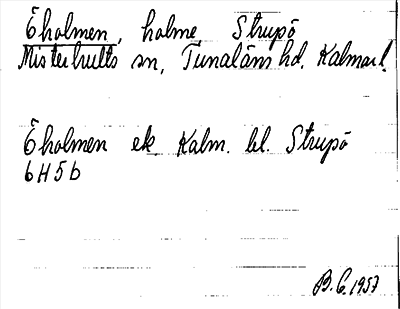 Eholmen, holme, Strupö
Misterhults sn, Tunaläns hd, Kalmar l.
Eholmen ek. Kalm. bl. Strupö
6H5b
B.E. 1957